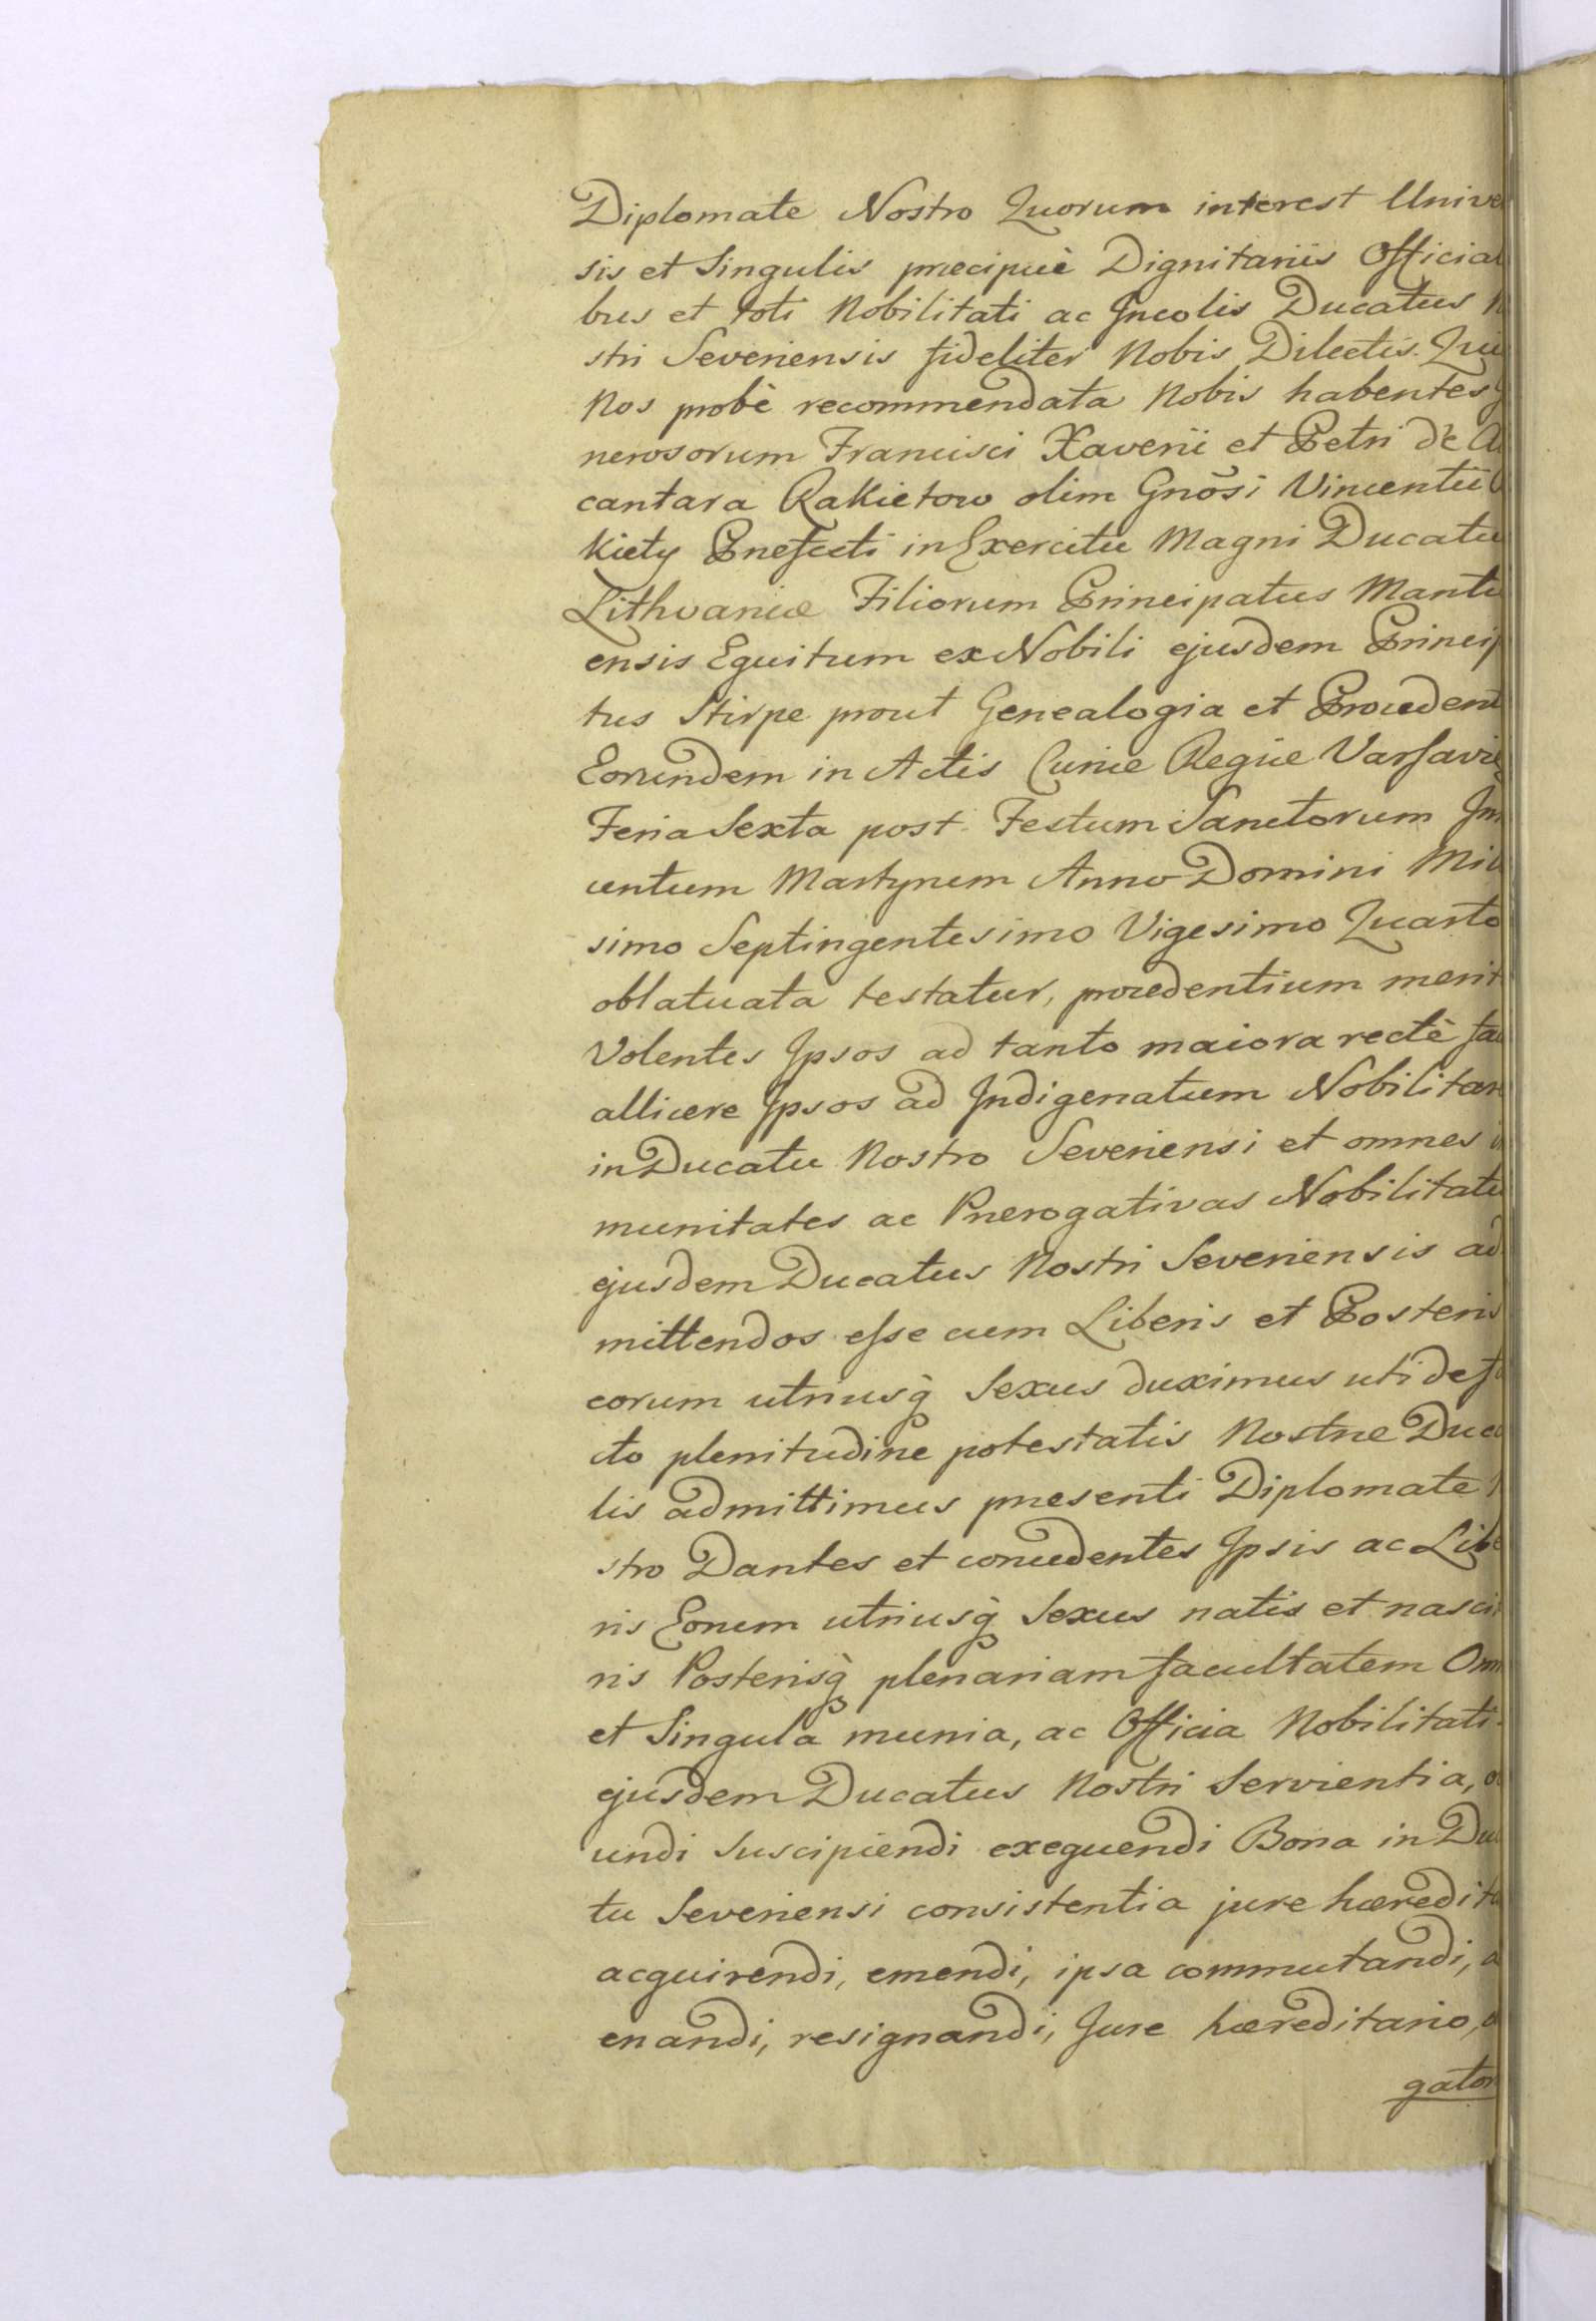 Diplomate Nostro Quorum interest Unive
sis et Singulis præcipuè Dignitariis Official
bus et toti Nobilitati ac Incolis Ducatus N
stri Severiensis fideliter Nobis Dilectis. Qui
Nos probè recommendata Nobis habentes
nerosorum Francisci Xaverii et Petri de A
cantara Rakietow olim Gnõsi Vincentii
kiety Præfecti in Exercitu Magni Ducatu
Lithvaniæ Filiorum Principatus Mantu
ensis Equitum ex Nobili ejusdem Princip
tus Stirpe prout Genealogia et Procedent
Eorundem in Actis Curiæ Regiæ Varsavie
Feria Sexta post Festum Sanctorum Inn
centum Martyrum Anno Domini Mil
simo Septingentesimo Vigesimo Quarto
oblatuata testatur, procedentium merit
Volentes Ipsos ad tanto maiora rectè fac
allicere Ipsos ad Indigenatum Nobilitar
in Ducatu Nostro Severiensi et omnes i
munitates ac Prærogativas Nobilitatu
ejusdem Ducatus Nostri Severiensis ad
mittendos esse cum Liberis et Posteris
eorum utriusq̀ Sexus duximus uti de fa
cto plenitudine potestatis Nostræ Duca
lis admittimus præsenti Diplomate N
stro Dantes et concedentes Ipsis ac Libe
ris Eorum utriusq̀ Sexus natis et nasci
ris Posterisq̀ plenariam facultatem Omn
et Singula munia, ac Officia Nobilitati
ejusdem Ducatus Nostri Servientia,
undi suscipiendi exequendi Bona in Du
tu Severiensi consistentia jure hæredita
acquirendi, emendi, ipsa commutandi, a
enandi, resignandi, Jure hæreditario,
gator